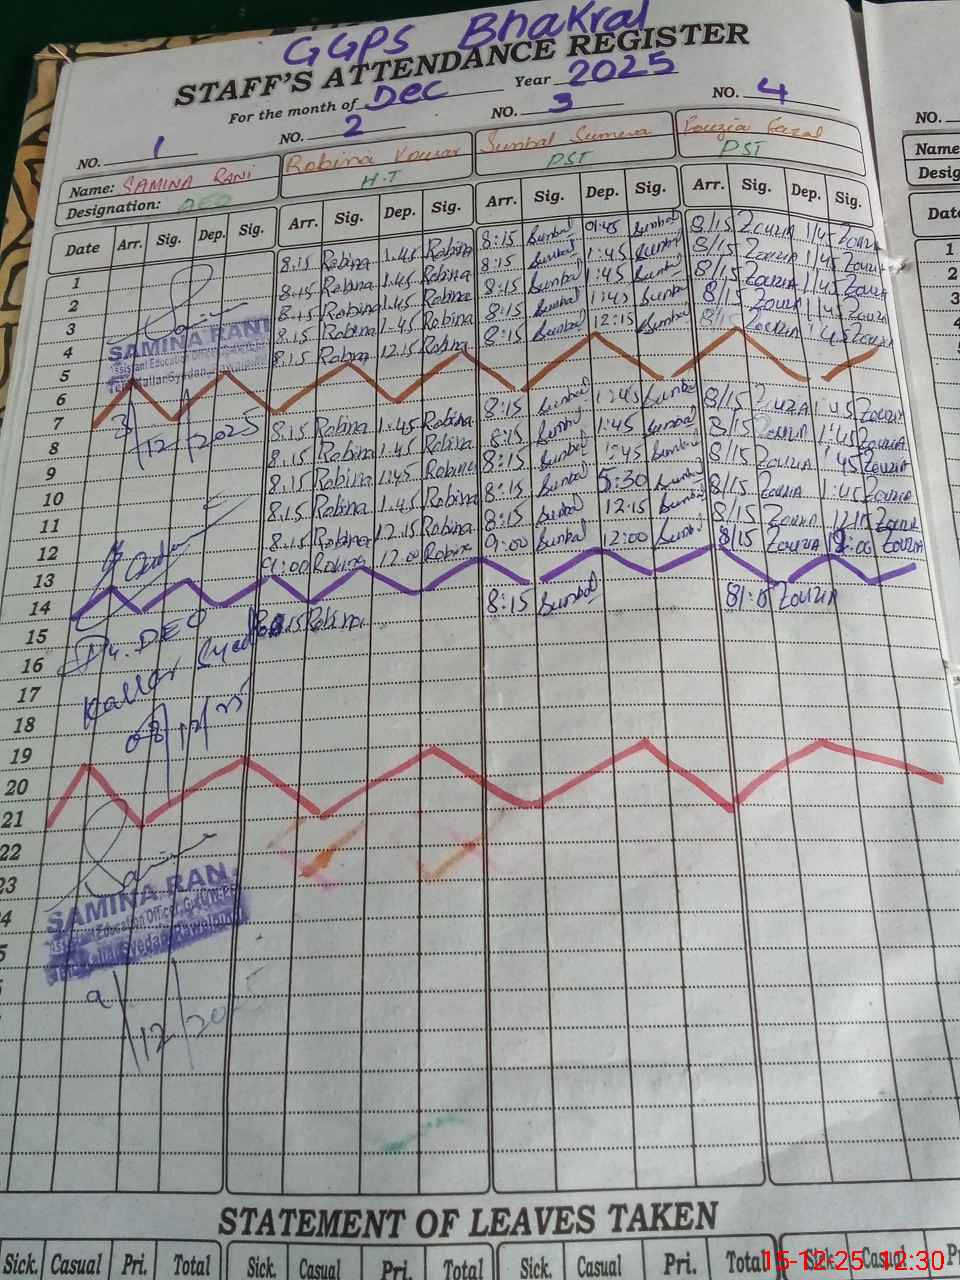 GGPS Bhakral
STAFF'S ATTENDANCE REGISTER
For the month of Dec Year 2025
NO. 1 NO. 2 NO. 3 NO. 4 NO.
Name: SAMINA RANI Robina Kousar Sumbal Sumera Fouzia Gazal Name
Designation: AEO H.T PST PST Desig
Date Arr. Sig. Dep. Sig. Arr. Sig. Dep. Sig. Arr. Sig. Dep. Sig. Arr. Sig. Dep. Sig. Date
1 8.15 Robina 1.45 Robina 8:15 Sumbal 01:45 Sumbal 8/15 Zouzia 1/45 Zouzia 1
2 8.15 Robina 1.45 Robina 8:15 Sumbal 1:45 Sumbal 8/15 Zouzia 1/45 Zouzia 2
3 8.15 Robina 1.45 Robina 8:15 Sumbal 1:45 Sumbal 8/15 Zouzia 1/45 Zouzia 3
4 8.15 Robina 1.45 Robina 8:15 Sumbal 1:45 Sumbal 8/15 Zouzia 1/45 Zouzia
5 8.15 Robina 12.15 Robina 8:15 Sumbal 12:15 Sumbal 8/15 Zouzia 1/45 Zouzia
SAMINA RANI
Assistant Education Officer
Kallar Syedan, Rawalpindi
6
7
3/12/2025
8 8.15 Robina 1.45 Robina 8:15 Sumbal 1:45 Sumbal 8/15 Zouzia 1:45 Zouzia
9 8.15 Robina 1.45 Robina 8:15 Sumbal 1:45 Sumbal 8/15 Zouzia 1:45 Zouzia
10 8.15 Robina 1:45 Robina 8:15 Sumbal 1:45 Sumbal 8/15 Zouzia 1:45 Zouzia
11 8.15 Robina 1.45 Robina 8:15 Sumbal 5:30 Sumbal 8/15 Zouzia 1:45 Zouzia
12 8.15 Robina 12.15 Robina 8:15 Sumbal 12:15 Sumbal 8/15 Zouzia 12:15 Zouzia
13 9:00 Robina 12.00 Robina 9:00 Sumbal 12:00 Sumbal 8/15 Zouzia 12:00 Zouzia
14
15 8.15 Robina 8:15 Sumbal 8/15 Zouzia
Dy. DEO
16
Kallar Syedan
17
18
08/12/25
19
20
21
22
23
SAMINA RANI
Assistant Education Officer
Kallar Syedan, Rawalpindi
9/12/2025
STATEMENT OF LEAVES TAKEN
Sick. Casual Pri. Total Sick. Casual Pri. Total Sick. Casual Pri. Total Sick. Casual Pri.
15-12-25 12:30